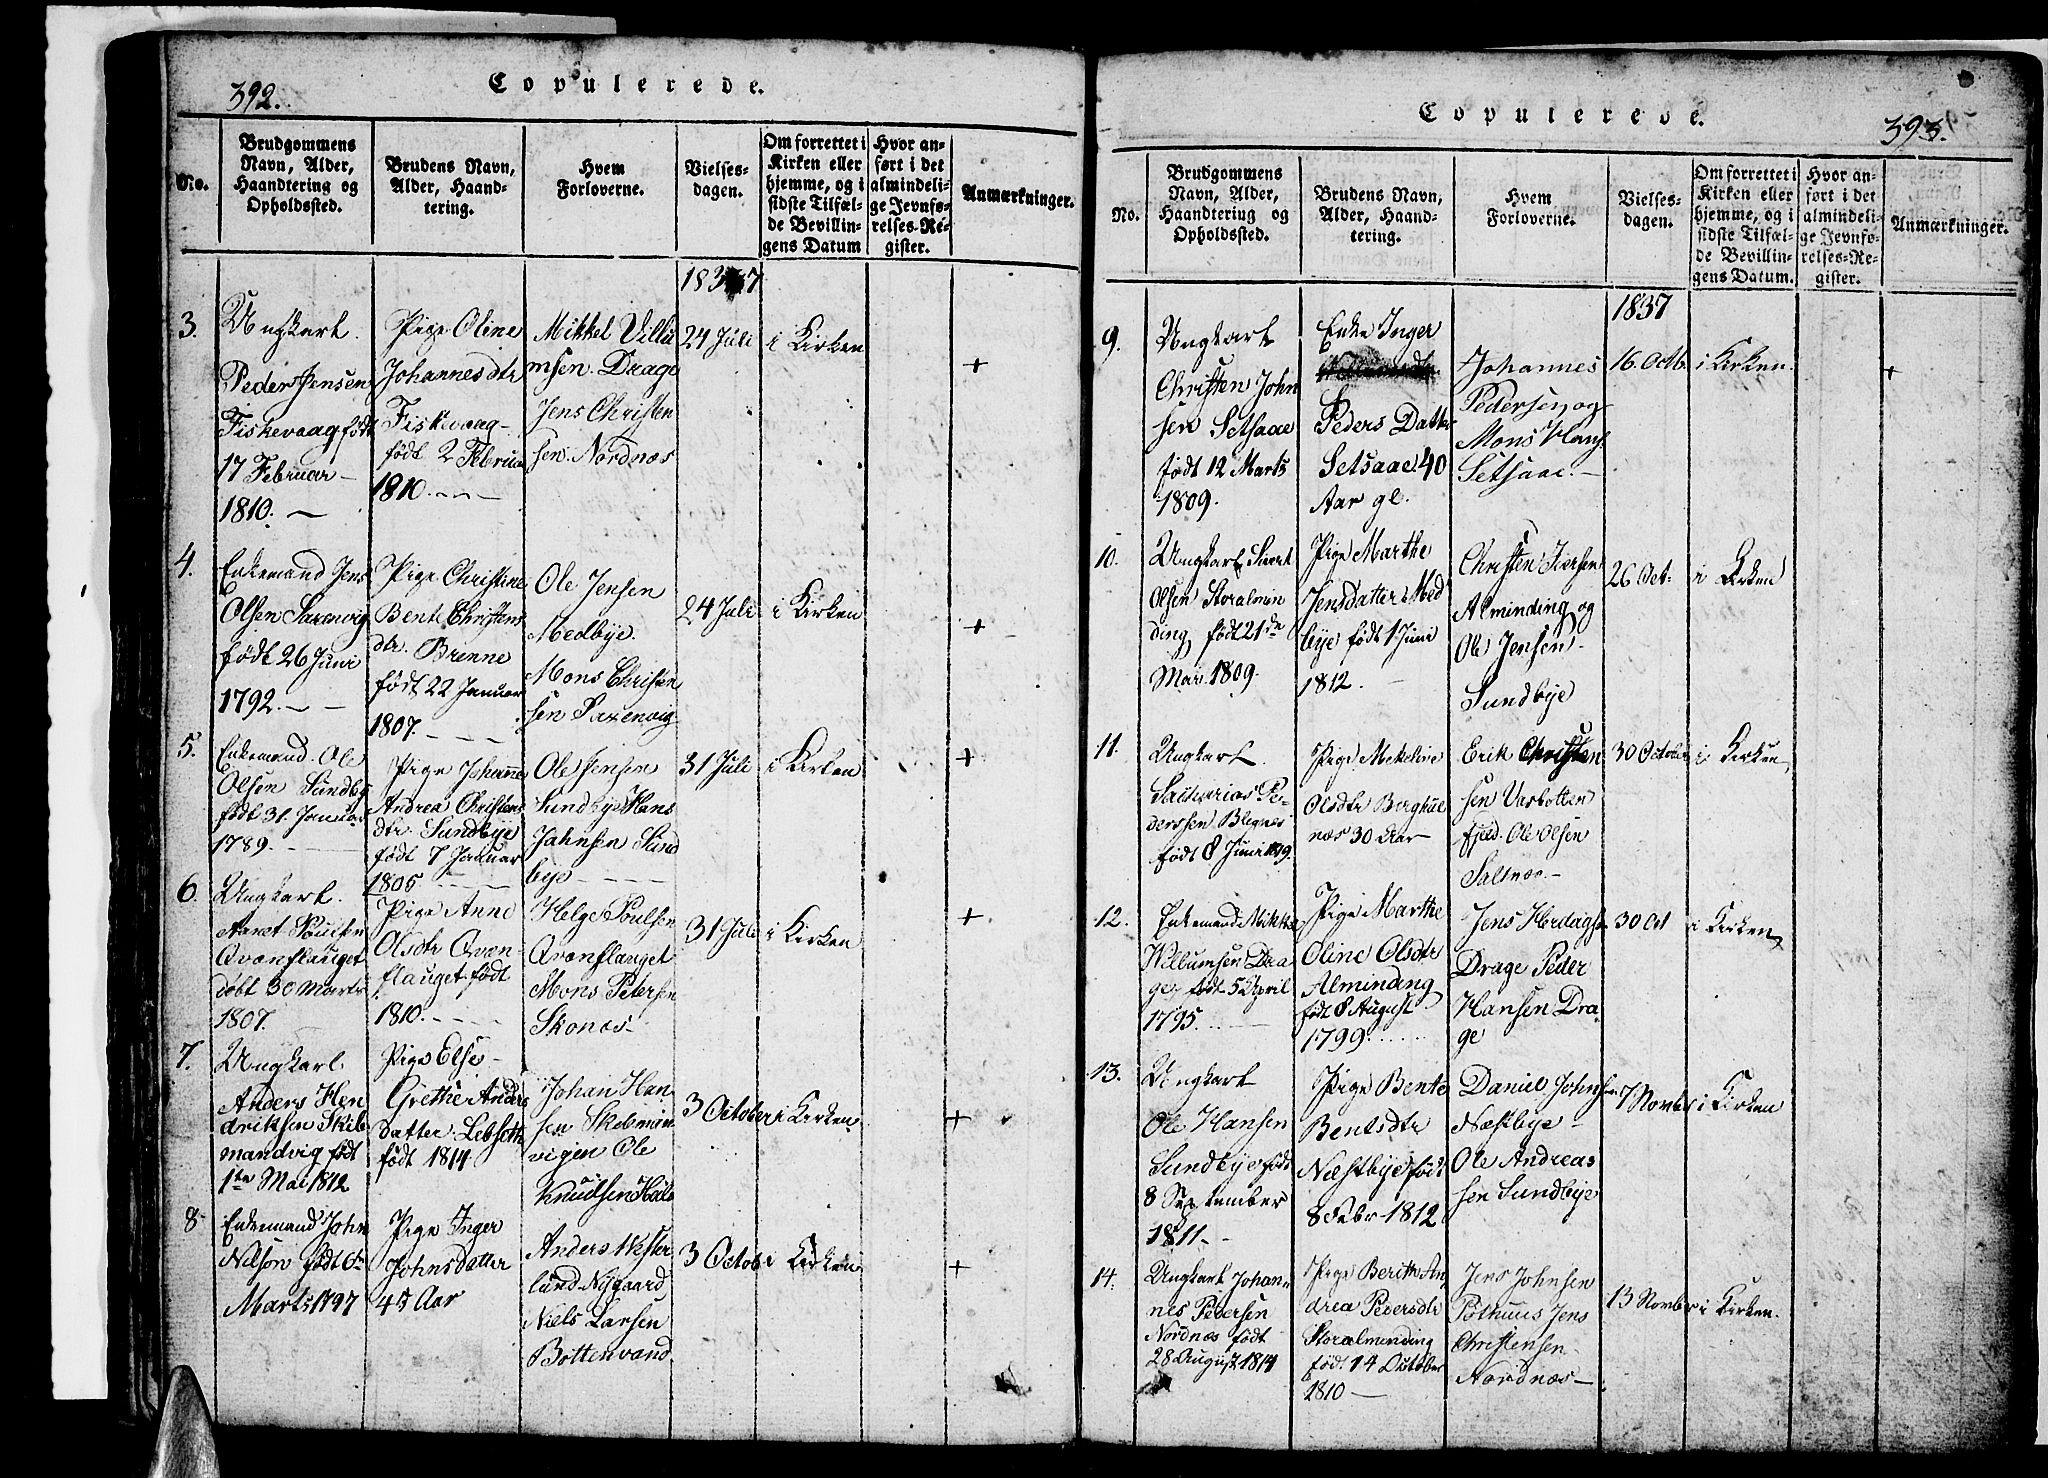 392.
Copulerede.
No.
Brudgommens
Navn, Alder,
Haandtering og
Opholdssted.
Brudens Navn,
Alder, Haand-
tering.
Hvem
Forloverne.
Vielses-
dagen.
Om forrettet i
Kirken eller
hjemme, og i
sidste Tilfæl-
de Bevillin-
gens Datum
Hvor an-
ført i det
almindeli-
ge Jevnfø-
relses-Re-
gister.
Anmærkninger.
1837
3.
Ungkarl
Peder Jensen
Fiskevaag født
17 Februar
1810. —
Pige Oline
Johannesdtr
Fiskevaag
født 2 Februa
1810. — —
Mikkel Villu
msen Drage
Jens Christen
sen Nordnæs
24 Juli
i Kirken
+
4.
Enkemand Jens
Olsen Saxenvig
født 26 Juni
1792. — —
Pige Christine
Bente Christens
dtr. Brenne
født 22 Januar
1807. — — —
Ole Jensen
Medbye.
Mons Christen
sen Saxenvig
24 Juli
i Kirken
+
5.
Enkemand Ole
Olsen Sundby
født 31. Januar
1789. — —
Pige Johanne
Andrea Christens
dtr. Sundbye
født 7 Januar
1805. — — —
Ole Jensen
Sundbye Hans
Jahnsen Sund
bye — — —
31 Juli
i Kirken
+
6.
Ungkarl.
Qvænflauget
døbt 30 Marts
1807.
Pige Anne
Olsdtr Qvæn-
flauget født
1810. — — —
Helge Poulsen
Qvænflauget
Mons Petersen
Skonæs —
31 Juli
i Kirken
+
7.
Ungkarl
Anders Hen
driksen Skib
mandvig født
1te Mai 1812
Pige Else
Grethe Anders
datter
født 1814
Johan Han
sen
vigen Ole
Knudsen
3 October
i Kirken
+
8
Enkemand John
Nilsen født 6te
Marts 1797
Pige Inger
Johnsdatter
45 Aar
Anders Wester
lund Nygaard
Niels Larsen
Bottenvand
3 Octob
i Kirken
+
Copulerede.
393.
No.
Brudgommens
Navn, Alder,
Haandtering og
Opholdssted.
Brudens Navn,
Alder, Haand-
tering.
Hvem
Forloverne.
Vielses-
dagen.
Om forrettet i
Kirken eller
hjemme, og i
sidste Tilfæl-
de Bevillin-
gens Datum.
Hvor an-
ført i det
almindeli-
ge Jevnfø-
relses-Re-
gister.
Anmærkninger.
1837
9.
Ungkarl
Christen John
sen Setsaae
født 12 Marts
1809.
Enke Inger
Peders Datter
Setsaae 40
Aar gl.
Johannes
Pedersen og
Mons Hans
Setsaae. —
16. Octb.
i Kirken.
+
10.
Ungkarl Sivert
Olsen Storalmin
ding født 21de
Mai 1809.
Pige Marthe
Jensdatter Med
bye født 1 Juni
1812. —
Christen Iversen
Alminding og
Ole Jensen
Sundbye
26 Oct.
i Kirken
11.
Ungkarl.
Sacharias Pe-
derssen
født 8 Juni
Pige Mekeline
Olsdtr
næs 30 Aar —
Erik Christen
sen
fjeld. Ole Olsen
Saltnæs —
30 October
i Kirken
12.
Enkemand Mikkel
Willumsen Dra
ge, født 5 April
1795. —
Pige Marthe
Oline Olsdtr
Alminding
født 8 August
1799. . . . .
Jens
Drage Peder
Hansen Dra
ge
30 Oct
i Kirken
13.
Ungkarl
Ole Hansen
Sundbye født
8 September
1811. —
Pige Bente
Bentsdtr
Næstbye født
8 Febr 1812
Daniel Johnsen
Næstbye
Ole Andreas
sen Sundbye
7 Novmber
i Kirken
14.
Ungkarl Johan
nes Pedersen
Nordnæs født
28 August 1814
Pige Berith An
drea Pedersdtr
Storalminding
født 14 October
1810 —
Jens Johnsen
Pothuus Jens
Christensen
Nordnæs —
13 Novmber
i Kirken.